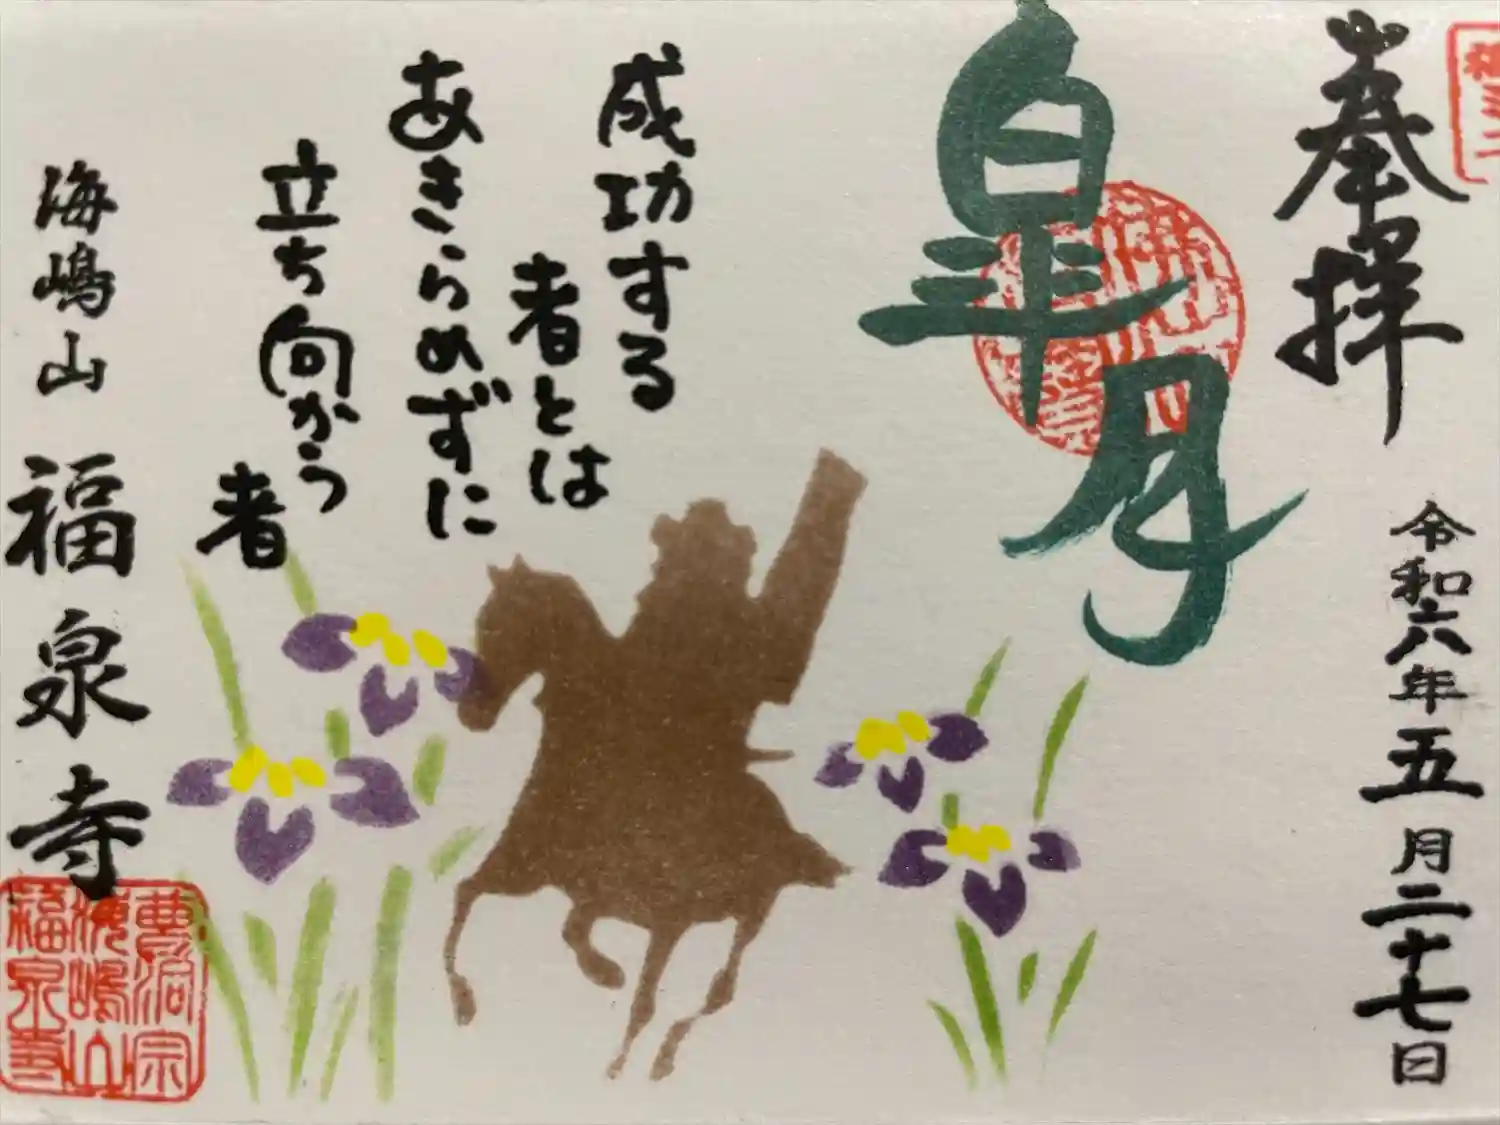 奉拝
令和六年五月二十七日
皐月
成功する
者とは
あきらめずに
立ち向かう
者
海嶋山 福泉寺
曹洞宗
海嶋山
福泉寺